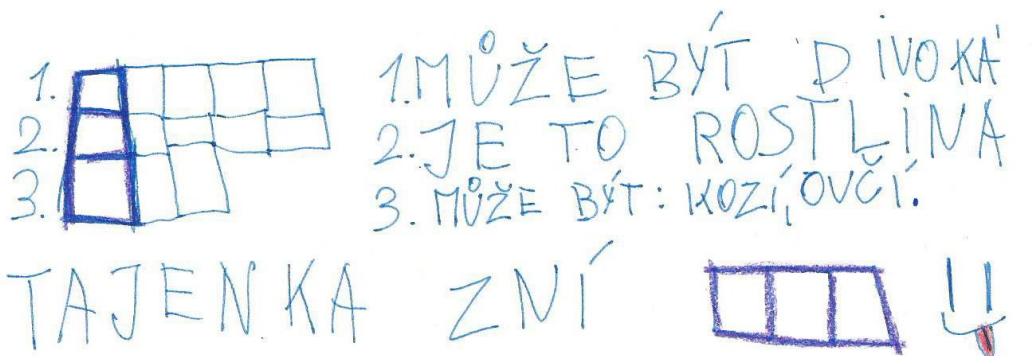 1. 1. MŮŽE BÝT DIVOKÁ
2. 2. JE TO ROSTLINA
3. 3. MŮŽE BÝT: KOZÍ, OVČÍ.
TAJENKA ZNÍ